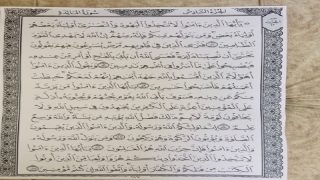 الجزء السادس سورة المائدة
يَٰٓأَيُّهَا ٱلَّذِينَ ءَامَنُوا۟ لَا تَتَّخِذُوا۟ ٱلْيَهُودَ وَٱلنَّصَٰرَىٰٓ أَوْلِيَآءَ بَعْضُهُمْ
أَوْلِيَآءُ بَعْضٍ وَمَن يَتَوَلَّهُم مِّنكُمْ فَإِنَّهُۥ مِنْهُمْ إِنَّ ٱللَّهَ لَا يَهْدِى ٱلْقَوْمَ
ٱلظَّٰلِمِينَ ٥١ فَتَرَى ٱلَّذِينَ فِى قُلُوبِهِم مَّرَضٌ يُسَٰرِعُونَ فِيهِمْ يَقُولُونَ
نَخْشَىٰٓ أَن تُصِيبَنَا دَآئِرَةٌ فَعَسَى ٱللَّهُ أَن يَأْتِىَ بِٱلْفَتْحِ أَوْ أَمْرٍ مِّنْ عِندِهِۦ
فَيُصْبِحُوا۟ عَلَىٰ مَآ أَسَرُّوا۟ فِىٓ أَنفُسِهِمْ نَٰدِمِينَ ٥٢ وَيَقُولُ ٱلَّذِينَ ءَامَنُوٓا۟
أَهَٰٓؤُلَآءِ ٱلَّذِينَ أَقْسَمُوا۟ بِٱللَّهِ جَهْدَ أَيْمَٰنِهِمْ إِنَّهُمْ لَمَعَكُمْ حَبِطَتْ
أَعْمَٰلُهُمْ فَأَصْبَحُوا۟ خَٰسِرِينَ ٥٣ يَٰٓأَيُّهَا ٱلَّذِينَ ءَامَنُوا۟ مَن يَرْتَدَّ مِنكُمْ عَن
دِينِهِۦ فَسَوْفَ يَأْتِى ٱللَّهُ بِقَوْمٍ يُحِبُّهُمْ وَيُحِبُّونَهُۥٓ أَذِلَّةٍ
عَلَى ٱلْمُؤْمِنِينَ أَعِزَّةٍ عَلَى ٱلْكَٰفِرِينَ يُجَٰهِدُونَ فِى سَبِيلِ ٱللَّهِ وَلَا
يَخَافُونَ لَوْمَةَ لَآئِمٍ ذَٰلِكَ فَضْلُ ٱللَّهِ يُؤْتِيهِ مَن يَشَآءُ وَٱللَّهُ وَٰسِعٌ
عَلِيمٌ ٥٤ إِنَّمَا وَلِيُّكُمُ ٱللَّهُ وَرَسُولُهُۥ وَٱلَّذِينَ ءَامَنُوا۟ ٱلَّذِينَ يُقِيمُونَ
ٱلصَّلَوٰةَ وَيُؤْتُونَ ٱلزَّكَوٰةَ وَهُمْ رَٰكِعُونَ ٥٥ وَمَن يَتَوَلَّ ٱللَّهَ وَرَسُولَهُۥ
وَٱلَّذِينَ ءَامَنُوا۟ فَإِنَّ حِزْبَ ٱللَّهِ هُمُ ٱلْغَٰلِبُونَ ٥٦ يَٰٓأَيُّهَا ٱلَّذِينَ ءَامَنُوا۟
لَا تَتَّخِذُوا۟ ٱلَّذِينَ ٱتَّخَذُوا۟ دِينَكُمْ هُزُوًا وَلَعِبًا مِّنَ ٱلَّذِينَ أُوتُوا۟
ٱلْكِتَٰبَ مِن قَبْلِكُمْ وَٱلْكُفَّارَ أَوْلِيَآءَ وَٱتَّقُوا۟ ٱللَّهَ إِن كُنتُم مُّؤْمِنِينَ ٥٧